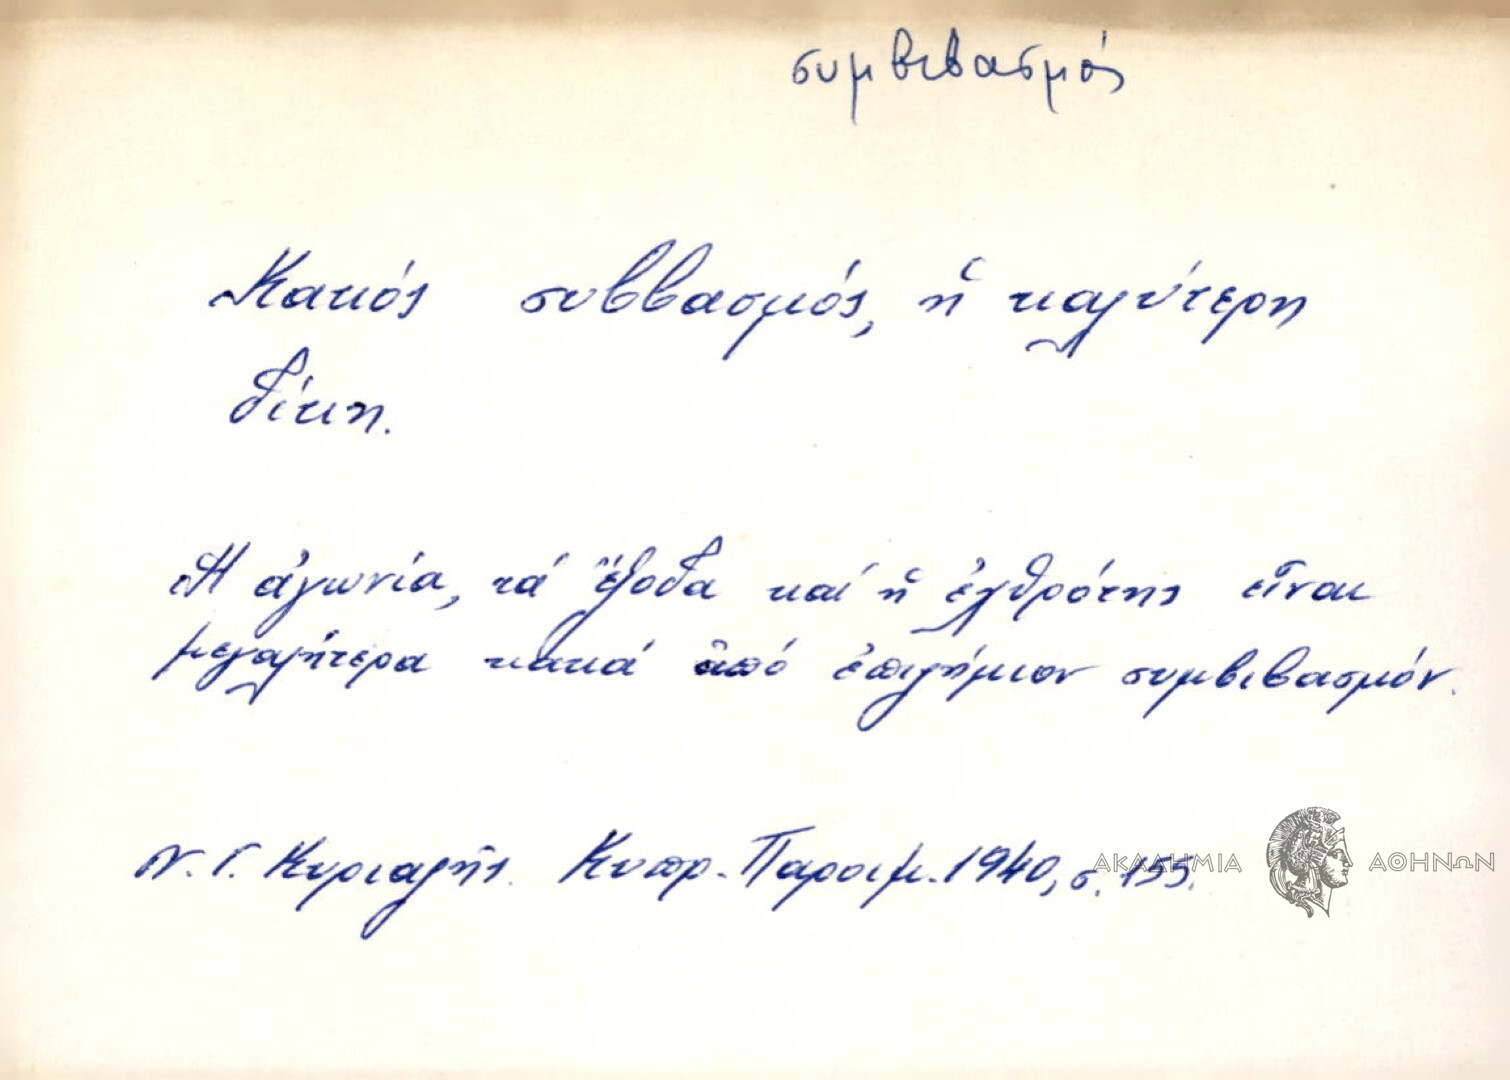 συμβιβασμός
Κακός συββασμός, ἡ καλύτερη
δίκη.
Ἡ ἀγωνία, τά ἔξοδα καί ἡ ἐχθρότης εἶναι
μεγαλήτερα κακά ἀπό ἐπιζήμιον συμβιβασμόν.
Ν. Γ. Κυριαζῆς. Κυπρ. Παροιμ. 1940, σ. 155.
ΑΚΑΔΗΜΙΑ ΑΘΗΝΩΝ